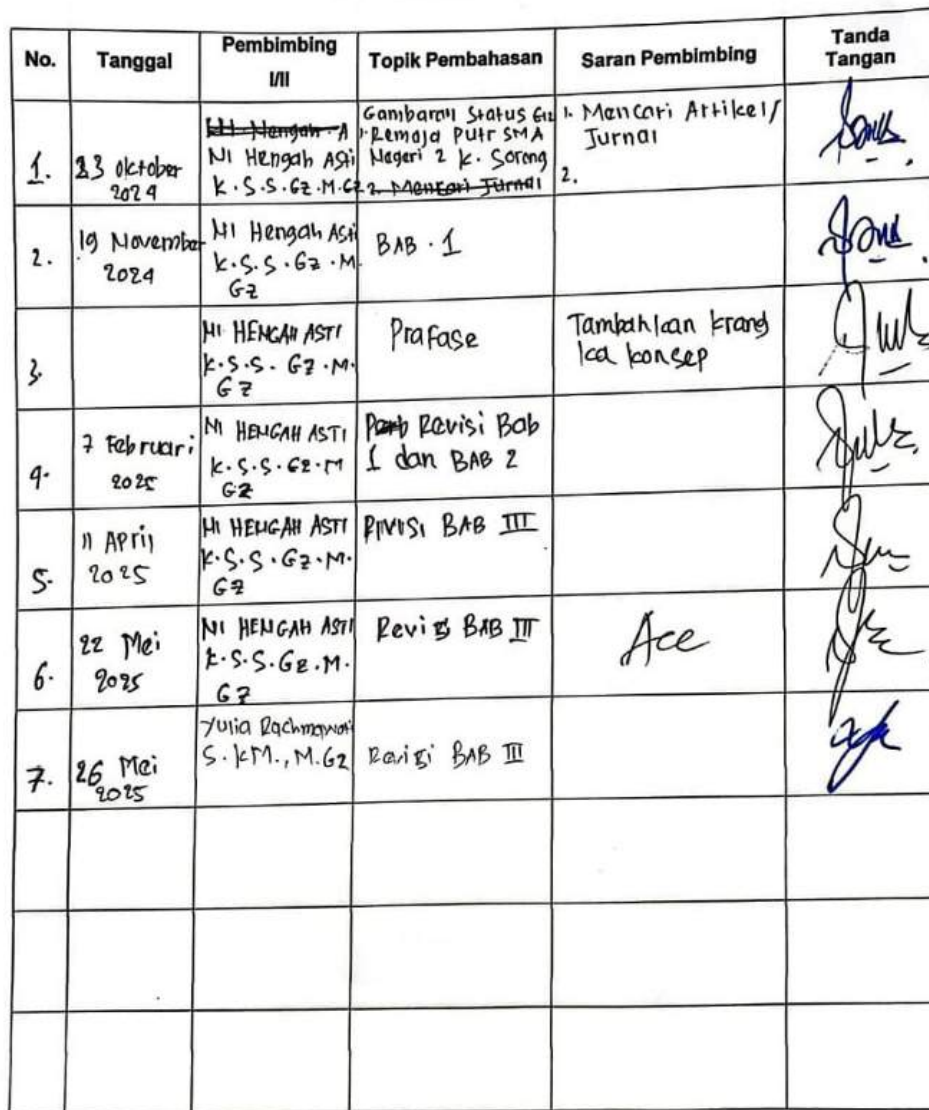 No. Tanggal Pembimbing I/II Topik Pembahasan Saran Pembimbing Tanda Tangan
1. 23 oktober 2024
Ni Nengah A
NI Hengah Asti
K.S.S.GZ.M.GZ
Gambaran Status Giz
1. Remaja Putr SMA
Negeri 2 K. Sorong
2. Mencari Jurnal
1. Mencari Artikel/
Jurnal
2.
2. 19 November 2024
NI Hengah Asti
K.S.S.GZ.M.
GZ
BAB.1
3.
NI HENGAH ASTI
K.S.S.GZ.M.
GZ
Prafase
Tambahkan krang
ka konsep
4. 7 Februari 2025
NI HENGAH ASTI
K.S.S.GZ.M
GZ
Revisi Bab
1 dan BAB 2
5. 11 April 2025
NI HENGAH ASTI
K.S.S.GZ.M.
GZ
RIVISI BAB III
6. 22 Mei 2025
NI HENGAH ASTI
K.S.S.GZ.M.
GZ
Revisi BAB III
Acc
7. 26 Mei 2025
Yulia Rachmawati
S.KM., M.GZ
Revisi BAB III